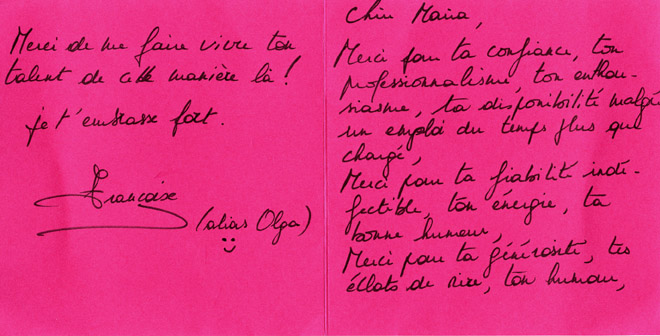 Merci de me faire vivre ton
talent de cette manière là !
je t'embrasse fort.
Françoise
(alias Olga)
Chère Maria,
Merci pour ta confiance, ton
professionnalisme, ton enthou-
siasme, ta disponibilité malgré
un emploi du temps plus que
chargé,
Merci pour ta fiabilité indé-
fectible, ton énergie, ta
bonne humeur,
Merci pour ta générosité, tes
éclats de rire, ton humour,